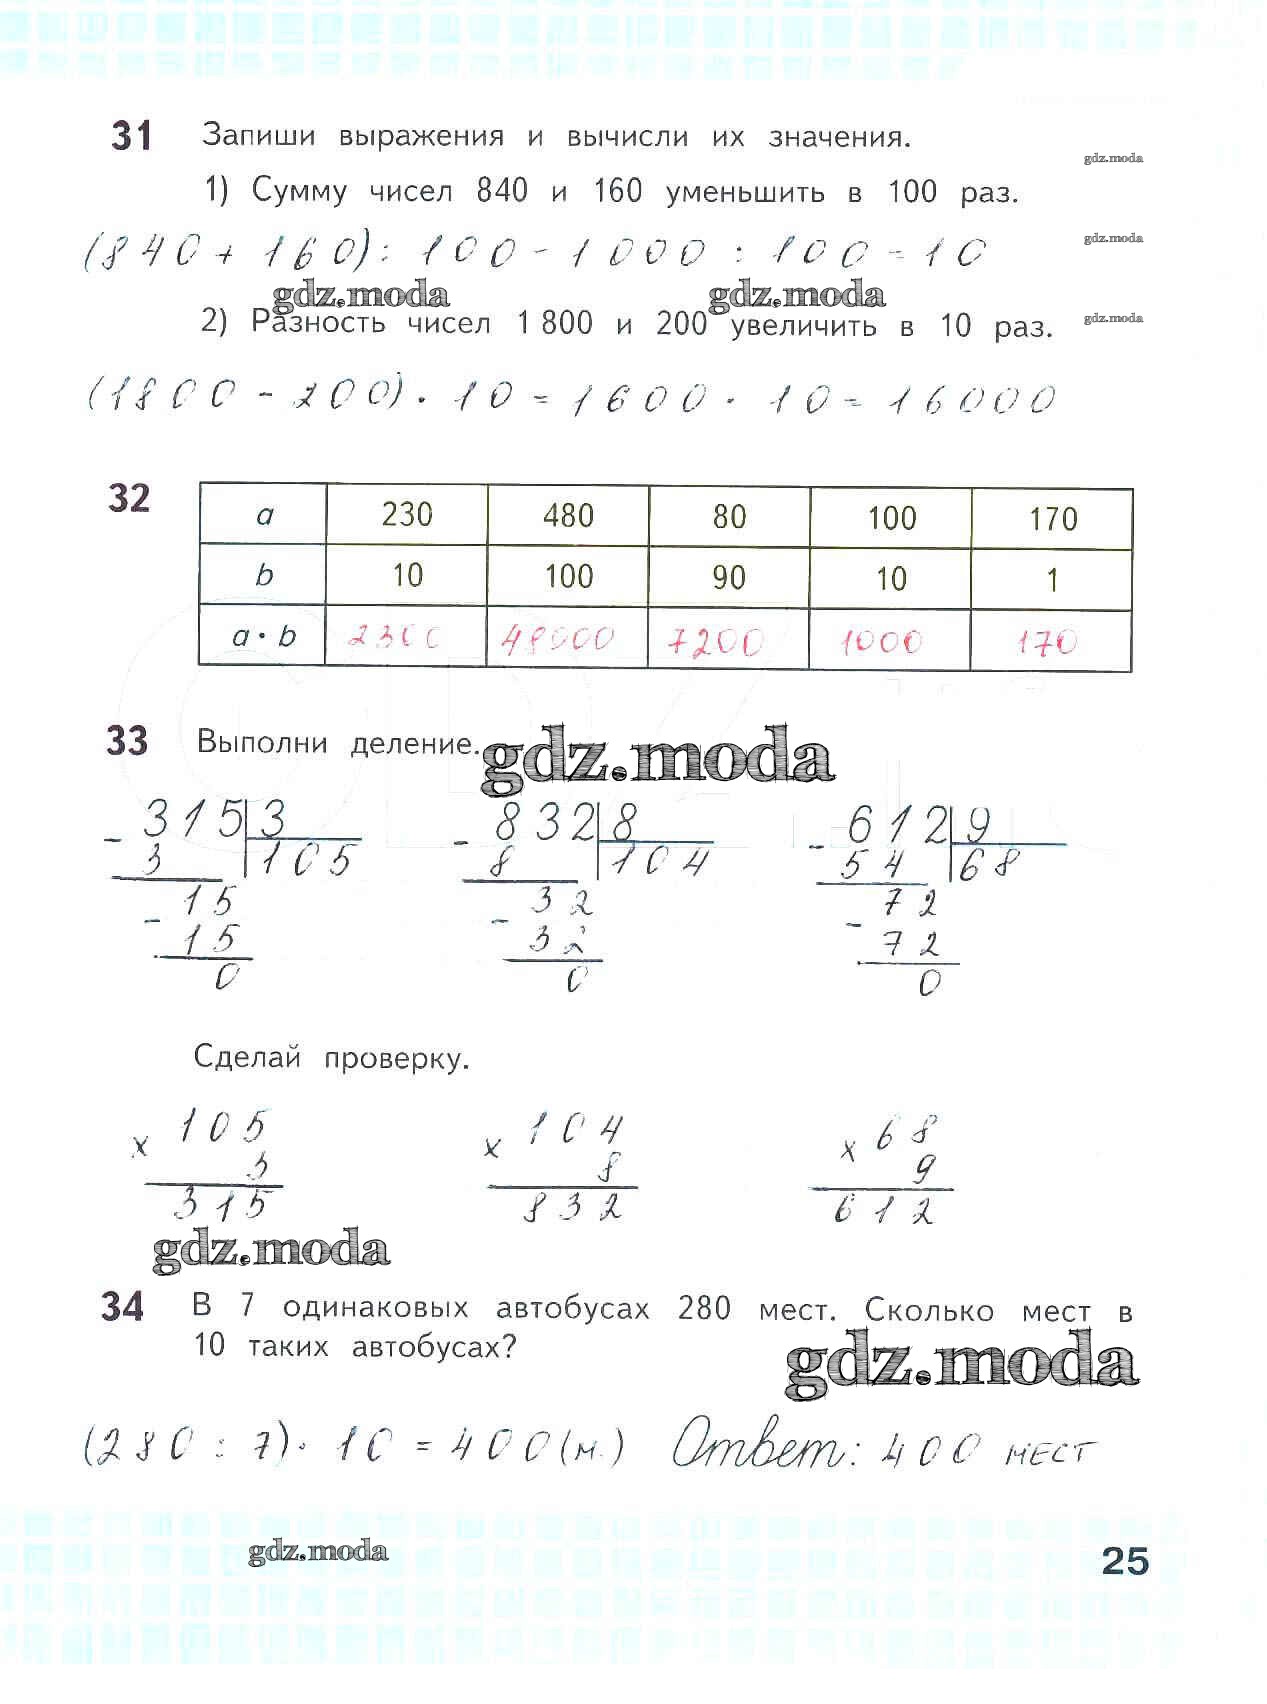 31 Запиши выражения и вычисли их значения.
gdz.moda
1) Сумму чисел 840 и 160 уменьшить в 100 раз.
(840 + 160) : 100 - 1000 : 100 = 10
gdz.moda
gdz.moda gdz.moda
2) Разность чисел 1 800 и 200 увеличить в 10 раз.
gdz.moda
(1800 - 200) · 10 = 1600 · 10 = 16000
32
a 230 480 80 100 170
b 10 100 90 10 1
a · b 2300 48000 7200 1000 170
33 Выполни деление.
gdz.moda
- 315 3 - 832 8 - 612 9
3 105 8 104 54 68
- 15 - 32 - 72
15 32 72
0 0 0
Сделай проверку.
x 105 x 104 x 68
3 8 9
315 832 612
gdz.moda
34 В 7 одинаковых автобусах 280 мест. Сколько мест в
10 таких автобусах?
gdz.moda
(280 : 7) · 10 = 400 (м.) Ответ: 400 мест
gdz.moda
25